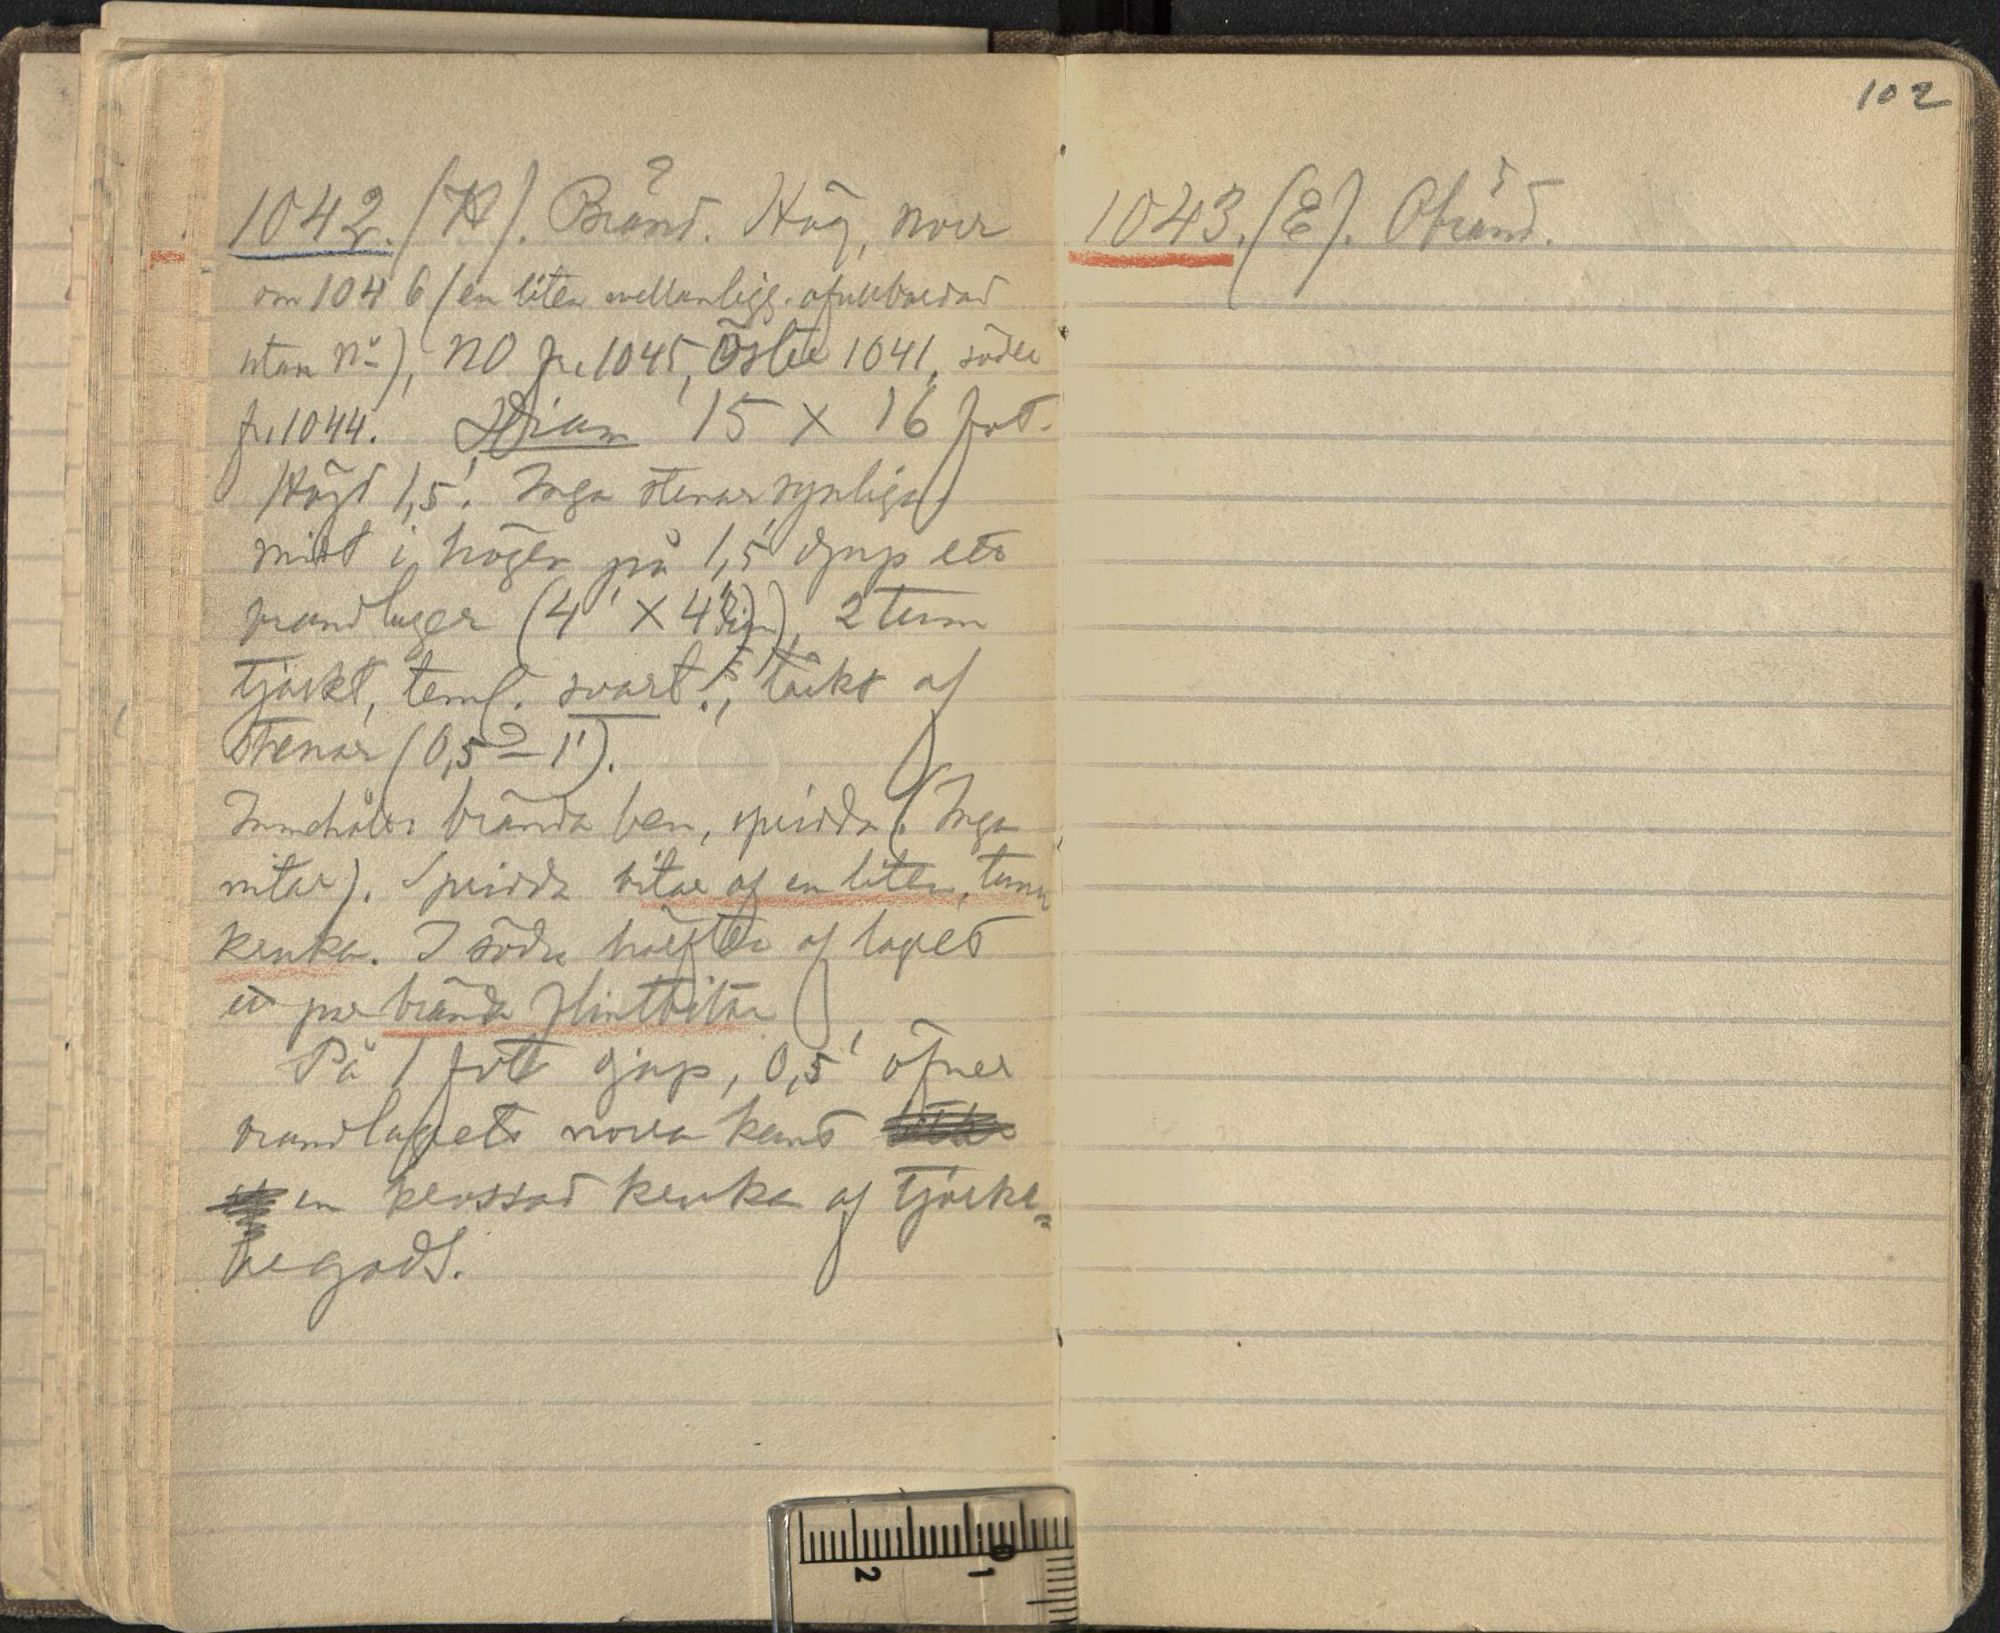 1042. (H). Bränd. Hög, norr
om 1046 (en liten mellanligg. 
utan No), NO fr. 1045, Öster 1041, söder
fr. 1044. Diam 15 x 16 fot.
Höjd 1,5'. Inga stenar synliga.
Midt i högen på 1,5' djup ett
brandlager (4' x 4'), 2 tum
tjockt, teml. svart!, täckt af
stenar (0,5 - 1').
Innehåller brända ben, spridda (Inga
nitar). Spridda bitar af en liten, tunn
kruka. I södra hälften af lagret
ett par brända flintbitar
På 1 fot djup, 0,5' öfver
brandlagrets norra kant
en krossad kruka af tjocka-
re gods.
102
1043. (E). Obränd.